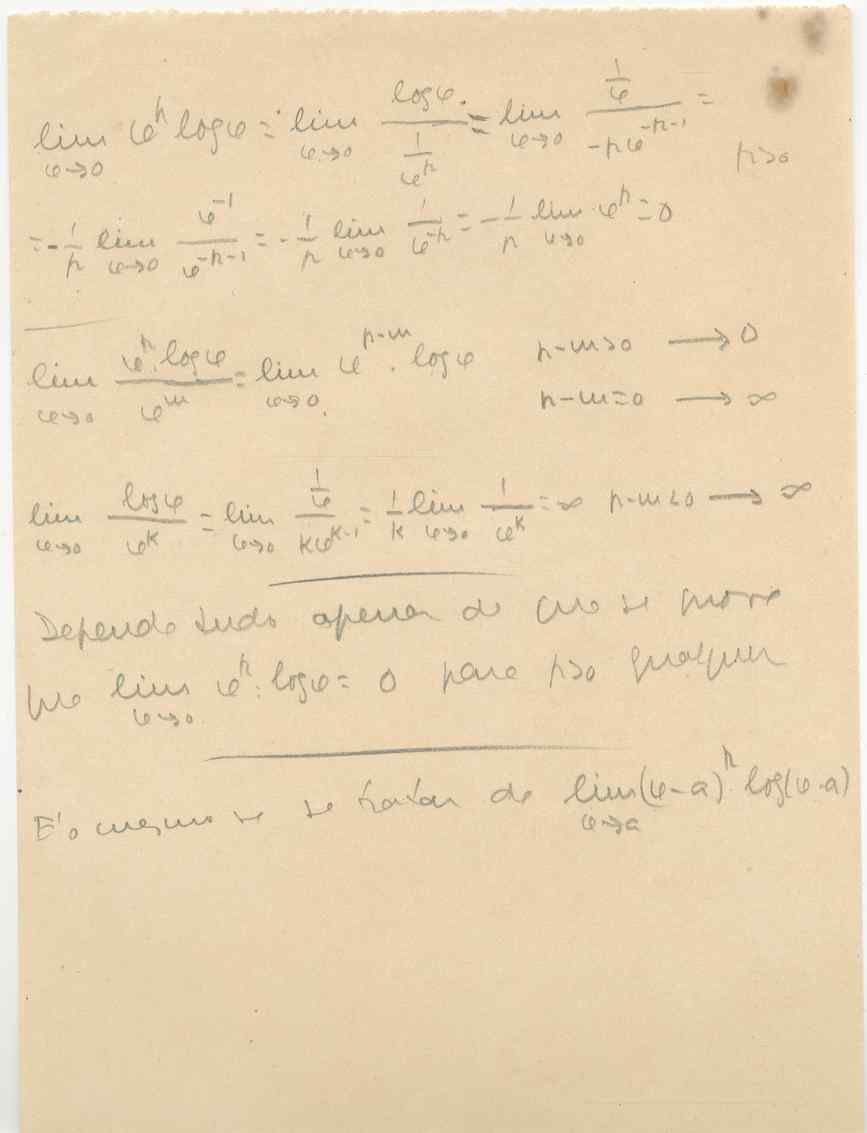 lim φ→0 φⁿ log φ = lim φ→0 log φ / (1/φⁿ) = lim φ→0 (1/φ) / (-n φ⁻ⁿ⁻¹) = n>0
= -1/n lim φ→0 φ⁻¹ / φ⁻ⁿ⁻¹ = -1/n lim φ→0 1/φ⁻ⁿ = -1/n lim φ→0 φⁿ = 0
lim φ→0 φⁿ·log φ / φᵐ = lim φ→0 φⁿ⁻ᵐ · log φ n-m>0 → 0
n-m=0 → ∞
lim φ→0 log φ / φᵏ = lim φ→0 (1/φ) / (kφᵏ⁻¹) = 1/k lim φ→0 1/φᵏ = ∞ n-m<0 → ∞
Depende tudo apenas de que se prove
que lim φ→0 φⁿ·log φ = 0 para n>0 qualquer
E' o mesmo se se tratar de lim φ→a (φ-a)ⁿ log(φ-a)